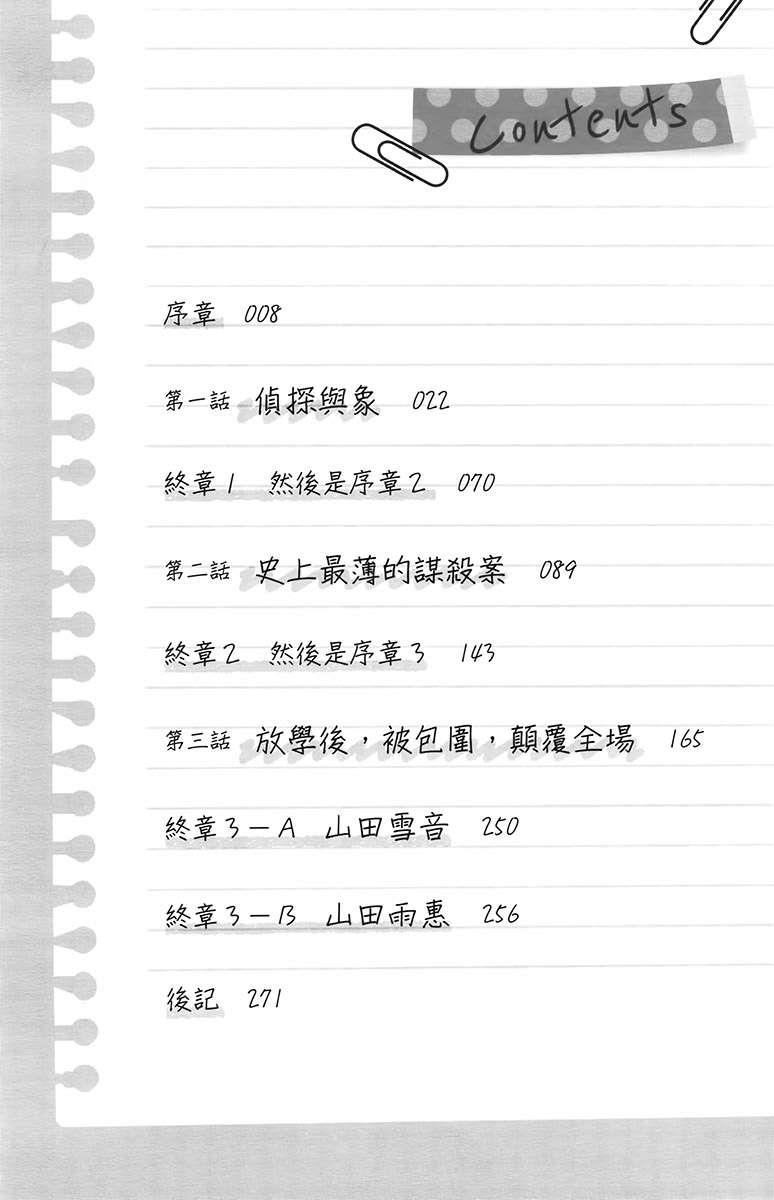 Contents
序章 008
第一話 偵探與象 022
終章1 然後是序章2 070
第二話 史上最薄的謀殺案 089
終章2 然後是序章3 143
第三話 放學後，被包圍，顛覆全場 165
終章3－A 山田雪音 250
終章3－B 山田雨惠 256
後記 271